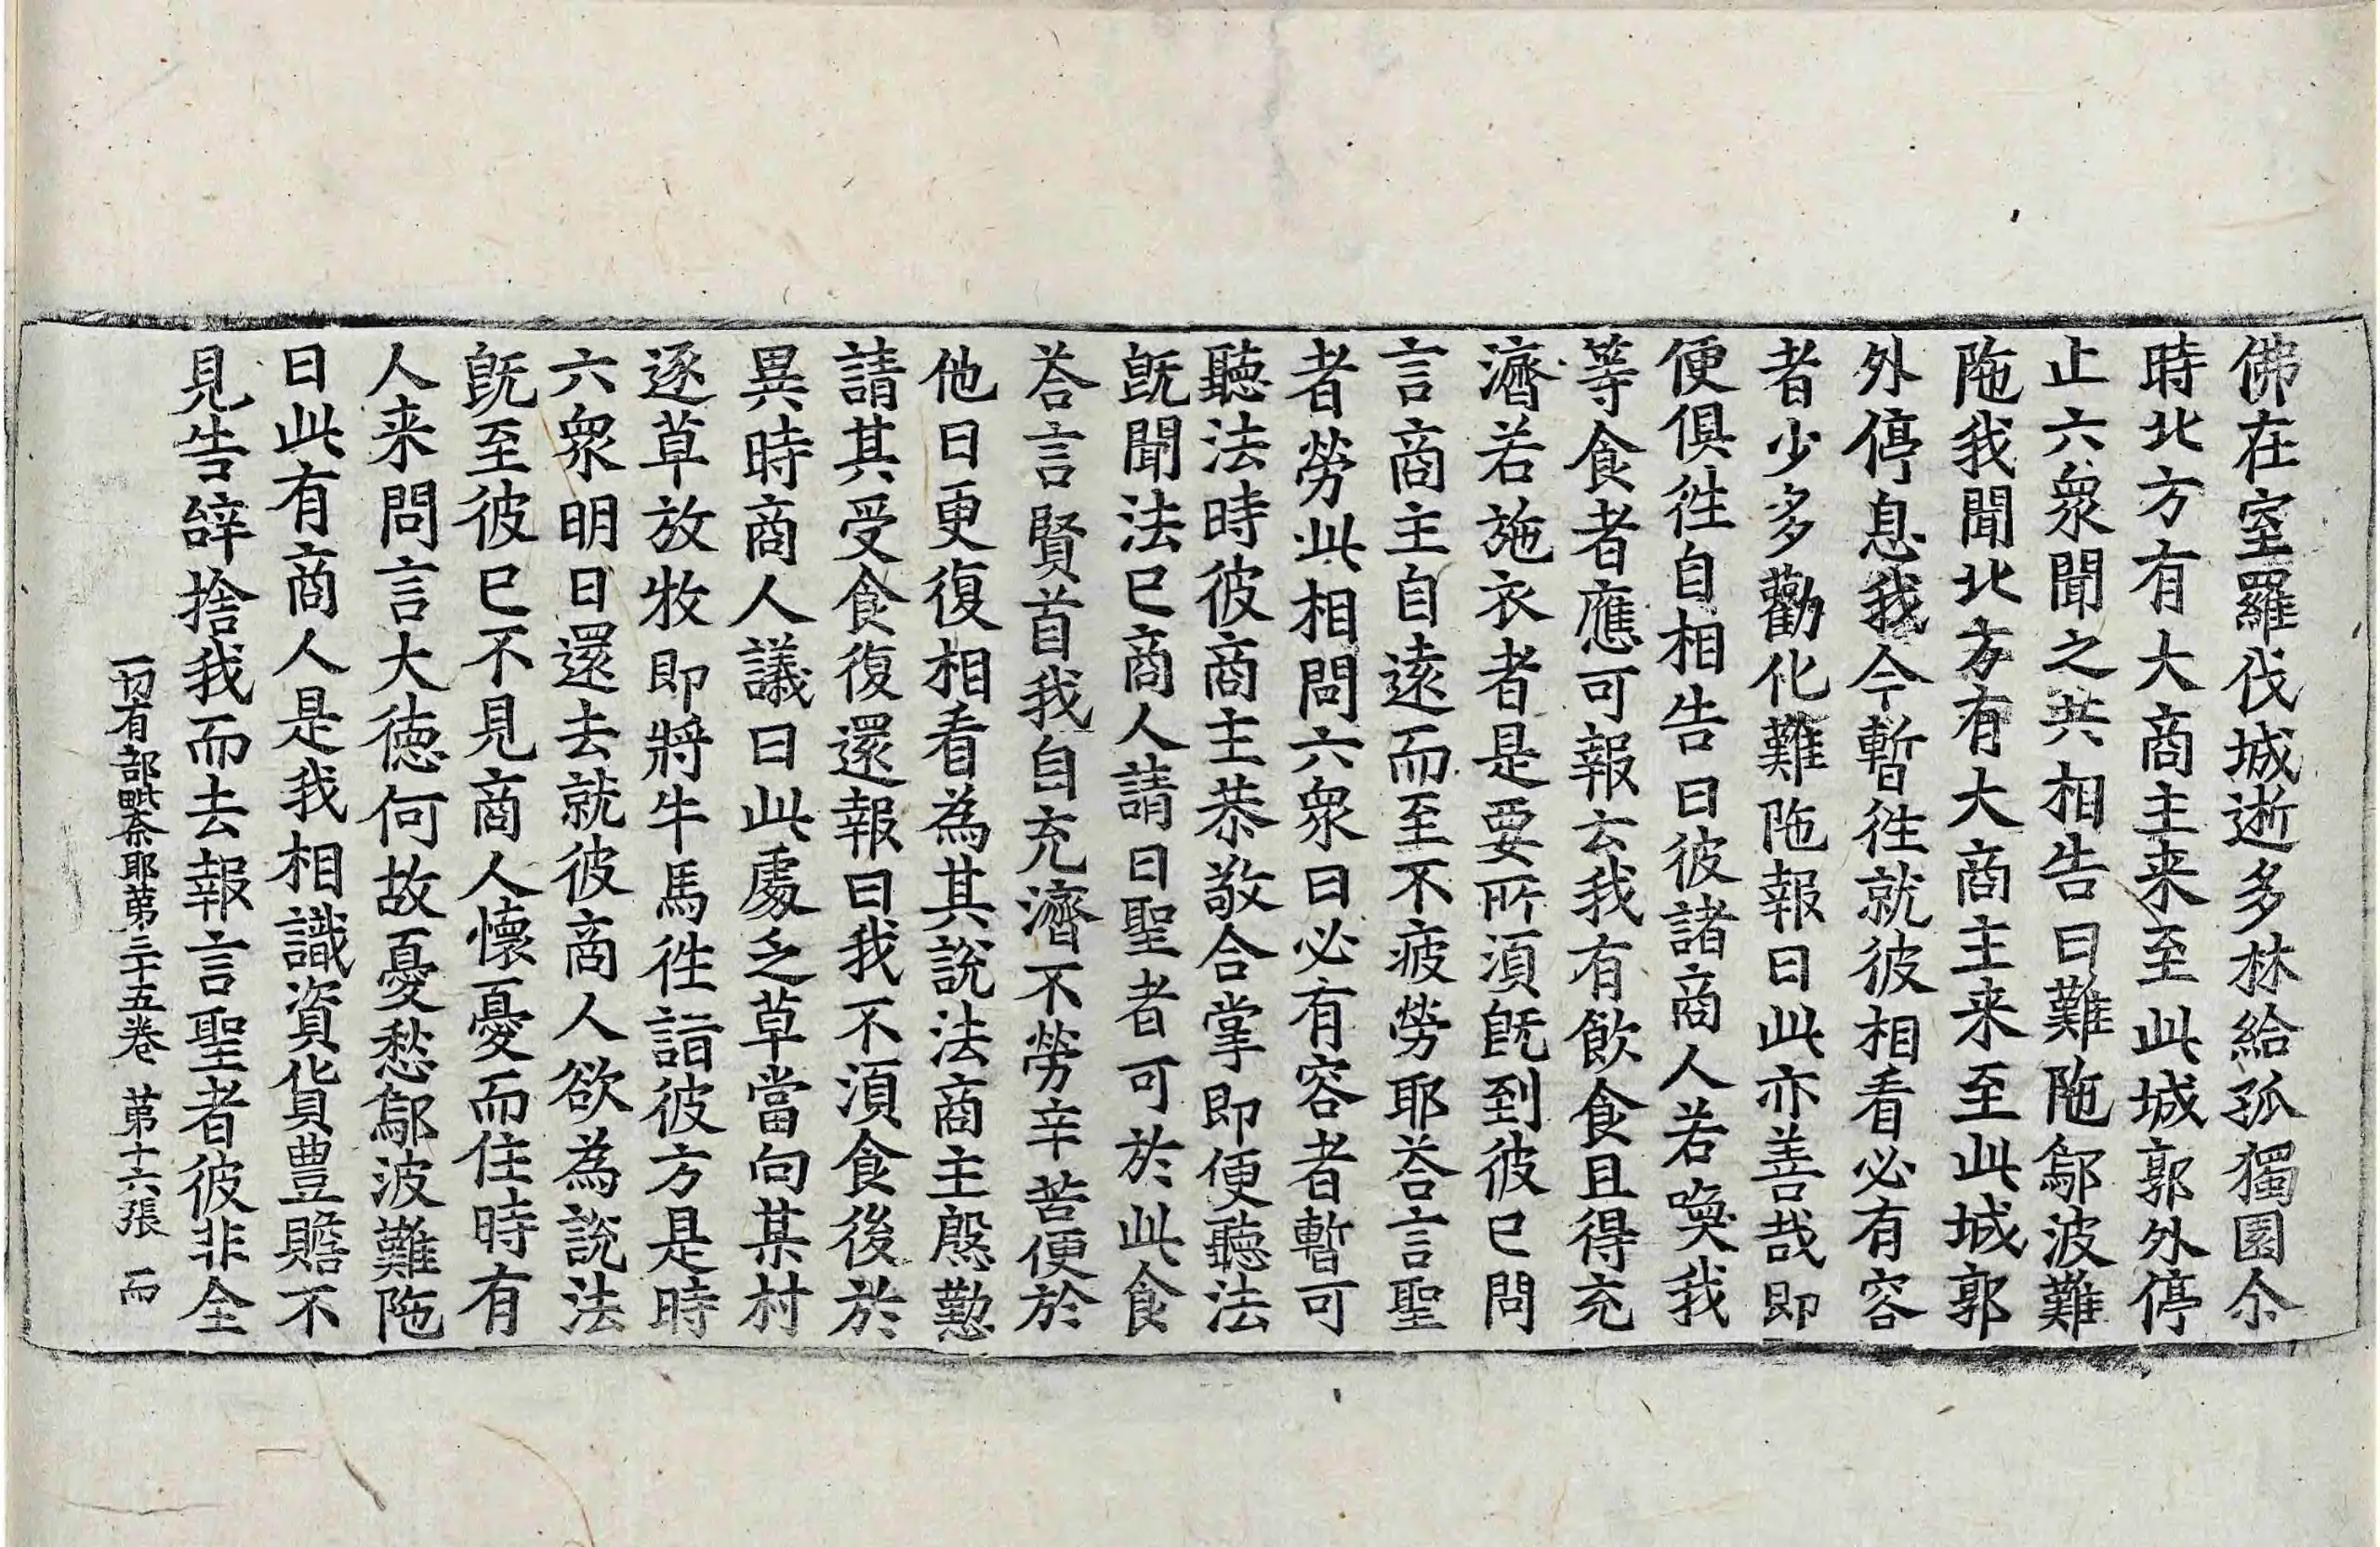 佛在室羅伐城逝多林給孤獨園尒
時北方有大商主来至此城郭外停
止六衆聞之共相告曰難陁鄔波難
陁我聞北方有大商主来至此城郭
外停息我今暫徃就彼相看必有容
者少多勸化難陁報曰此亦善哉即
便俱徃自相告曰彼諸商人若喚我
等食者應可報云我有飲食且得充
濟若施衣者是要所湏旣到彼已問
言商主自遠而至不疲勞耶荅言聖
者勞此相問六衆曰必有容者暫可
聽法時彼商主恭敬合掌即便聽法
旣聞法已商人請曰聖者可於此食
荅言賢首我自充濟不勞辛苦便於
他日更復相看為其說法商主慇懃
請其受食復還報曰我不湏食後於
異時商人議曰此處乏草當向某村
逐草放牧即將牛馬徃詣彼方是時
六衆明日還去就彼商人欲為說法
旣至彼已不見商人懷憂而住時有
人来問言大德何故憂愁鄔波難陁
曰此有商人是我相識資貨豊贍不
見告辝捨我而去報言聖者彼非全
一切有部毗奈耶苐三十五卷 苐十六張 而